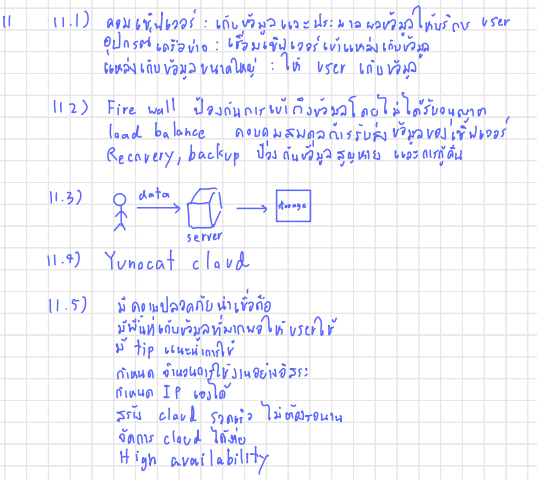 11 11.1) คอมเซิฟเวอร์ : เก็บข้อมูลและประมวลผลข้อมูลให้บริการ user
อุปกรณ์เครือข่าย : เชื่อมเซิฟเวอร์เข้าแหล่งเก็บข้อมูล
แหล่งเก็บข้อมูลขนาดใหญ่ : ให้ user เก็บข้อมูล
11.2) Fire wall ป้องกันการเข้าถึงข้อมูลโดยไม่ได้รับอนุญาต
load balance ควบคุมสมดุลการรับส่งข้อมูลของเซิฟเวอร์
Recovery, backup ป้องกันข้อมูลสูญหาย และการกู้คืน
11.3) data
storage
server
11.4) Yunocat cloud
11.5) มีความปลอดภัยน่าเชื่อถือ
มีพื้นที่เก็บข้อมูลที่มากพอให้ user ใช้
มี tip แนะนำการใช้
กำหนด จำนวนการใช้งานอย่างอิสระ
กำหนด IP เองได้
สร้าง cloud รวดเร็ว ไม่ต้องรอนาน
จัดการ cloud ได้ง่าย
High availability